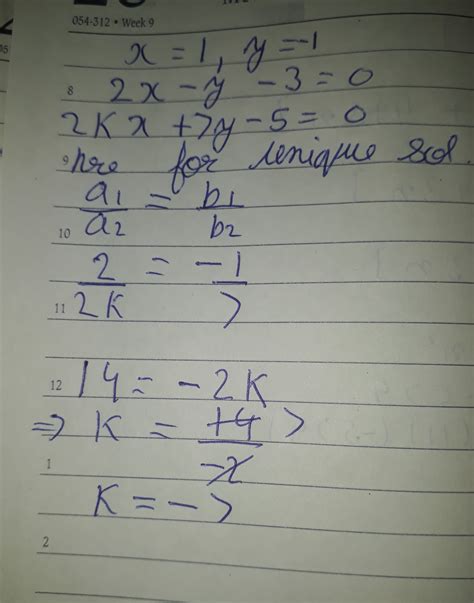 054-312 • Week 9
x = 1, y = -1
8 2x - y - 3 = 0
2Kx + 7y - 5 = 0
9 for unique sol.
a1/a2 = b1/b2
10
2/2K = -1/7
11
12 14 = -2K
⇒ K = +14 7/-2
1
K = -7
2